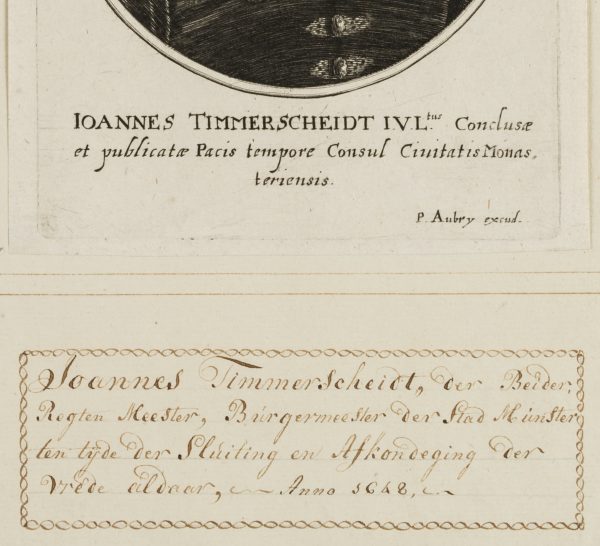 IOANNES TIMMERSCHEIDT I.V.L.tus Conclusæ
et publicatæ Pacis tempore Consul Ciuitatis Monas,
teriensis.
P. Aubry excud.
Joannes Timmerscheidt, der Beider,
Regten Meester, Burgermeester der Stad Munster
ten tyde der Sluiting en Afkondeging der
Vrede aldaar, Anno 1648.